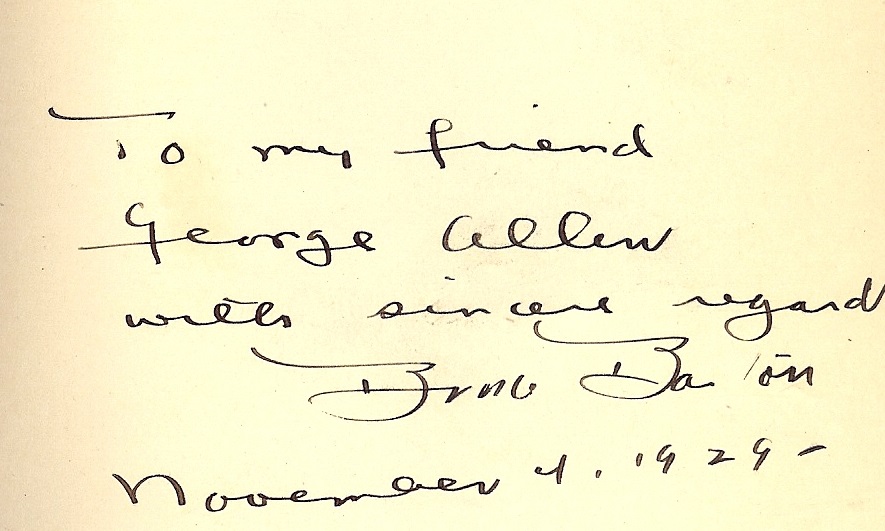 To my friend
George Allen
with sincere regard
Bruce Barton
November 4. 1929-